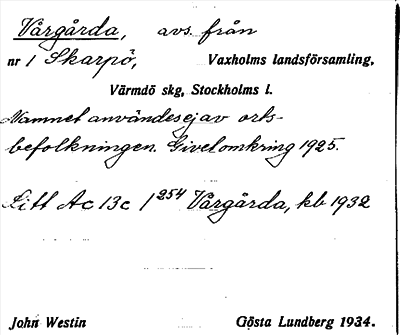 Vårgårda, avs. från
nr 1 Skarpö, Vaxholms landsförsamling,
Värmdö skg, Stockholms l.
Namnet användes ej av orts-
befolkningen. Givet omkring 1925.
Litt Ac 13c 1254 Vårgårda, kb 1932
John Westin Gösta Lundberg 1934.